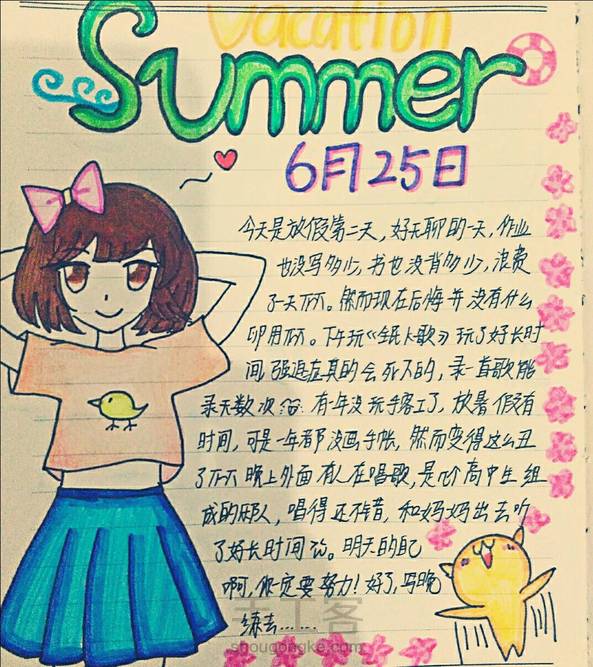 vacation
Summer
6月25日
今天是放假第二天，好无聊的一天，作业
也没写多少，书也没背多少，浪费
了一天不不。然而现在后悔并没有什么
卵用不不。下午玩《全民K歌》玩了好长时
间，强迫症真的会死人的，录一首歌能
录无数次。有一年没玩手账了，放暑假有
时间，可是一年都没画手帐，然而变得这么丑
了不不 晚上外面有人在唱歌，是几个高中生组
成的那人，唱得还不错，和妈妈出去听
了好长时间，明天的自己
啊，你一定要努力！好了，马晚
练去……
手工客
shougongke.com